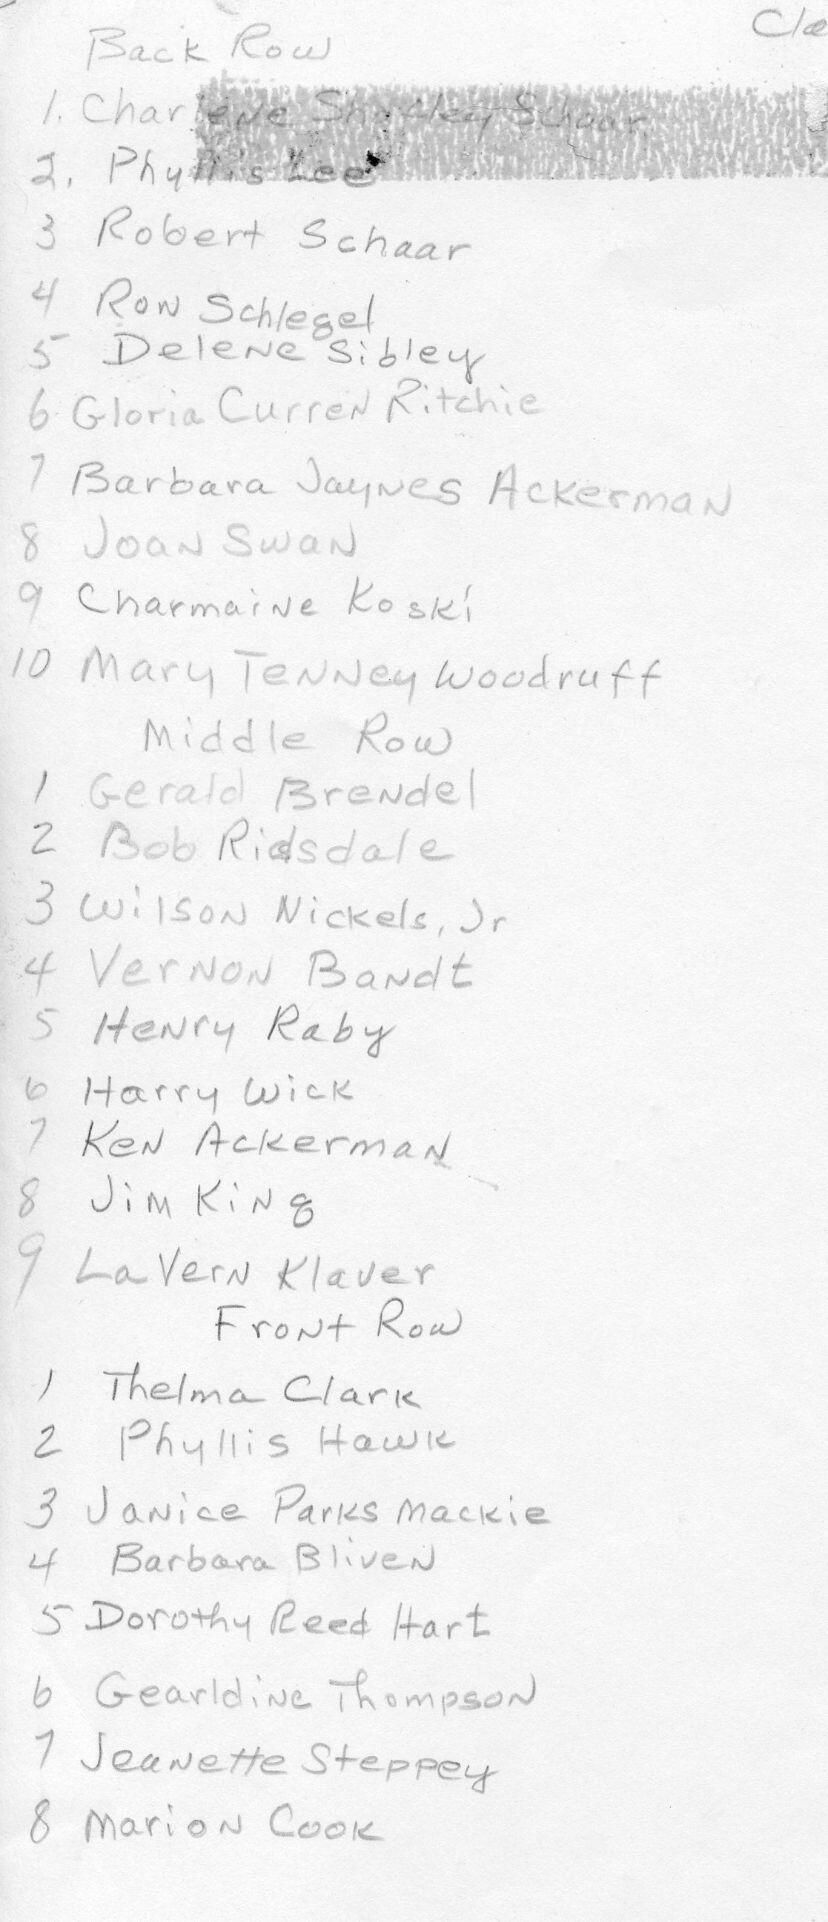 Back Row
1. Charlene Schaar
2. Phyllis Lee
3 Robert Schaar
4 Ron Schlegel
5 Delene Sibley
6 Gloria Curren Ritchie
7 Barbara Jaynes Ackerman
8 Joan Swan
9 Charmaine Koski
10 Mary Tenney Woodruff
Middle Row
1 Gerald Brendel
2 Bob Ridsdale
3 Wilson Nickels, Jr
4 Vernon Bandt
5 Henry Raby
6 Harry Wick
7 Ken Ackerman
8 Jim King
9 LaVern Klaver
Front Row
1 Thelma Clark
2 Phyllis Hawk
3 Janice Parks Mackie
4 Barbara Bliven
5 Dorothy Reed Hart
6 Gearldine Thompson
7 Jeanette Steppey
8 Marion Cook